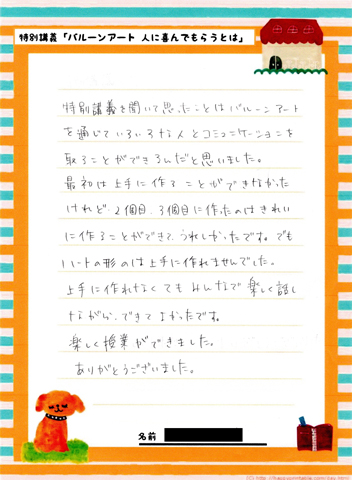 特別講義「バルーンアート 人に喜んでもらうとは」
特別講義を聞いて思ったことはバルーンアート
を通じていろいろな人とコミュニケーションを
取ることができるんだと思いました。
最初は上手に作ることができなかった
けれど、2個目、3個目に作ったのはきれい
に作ることができて、うれしかったです。でも
ハートの形のは上手に作れませんでした。
上手に作れなくてもみんなで楽しく話し
ながら、できてよかったです。
楽しく授業ができました。
ありがとうございました。
名前
(C) http://happyprintable.com/dau.html